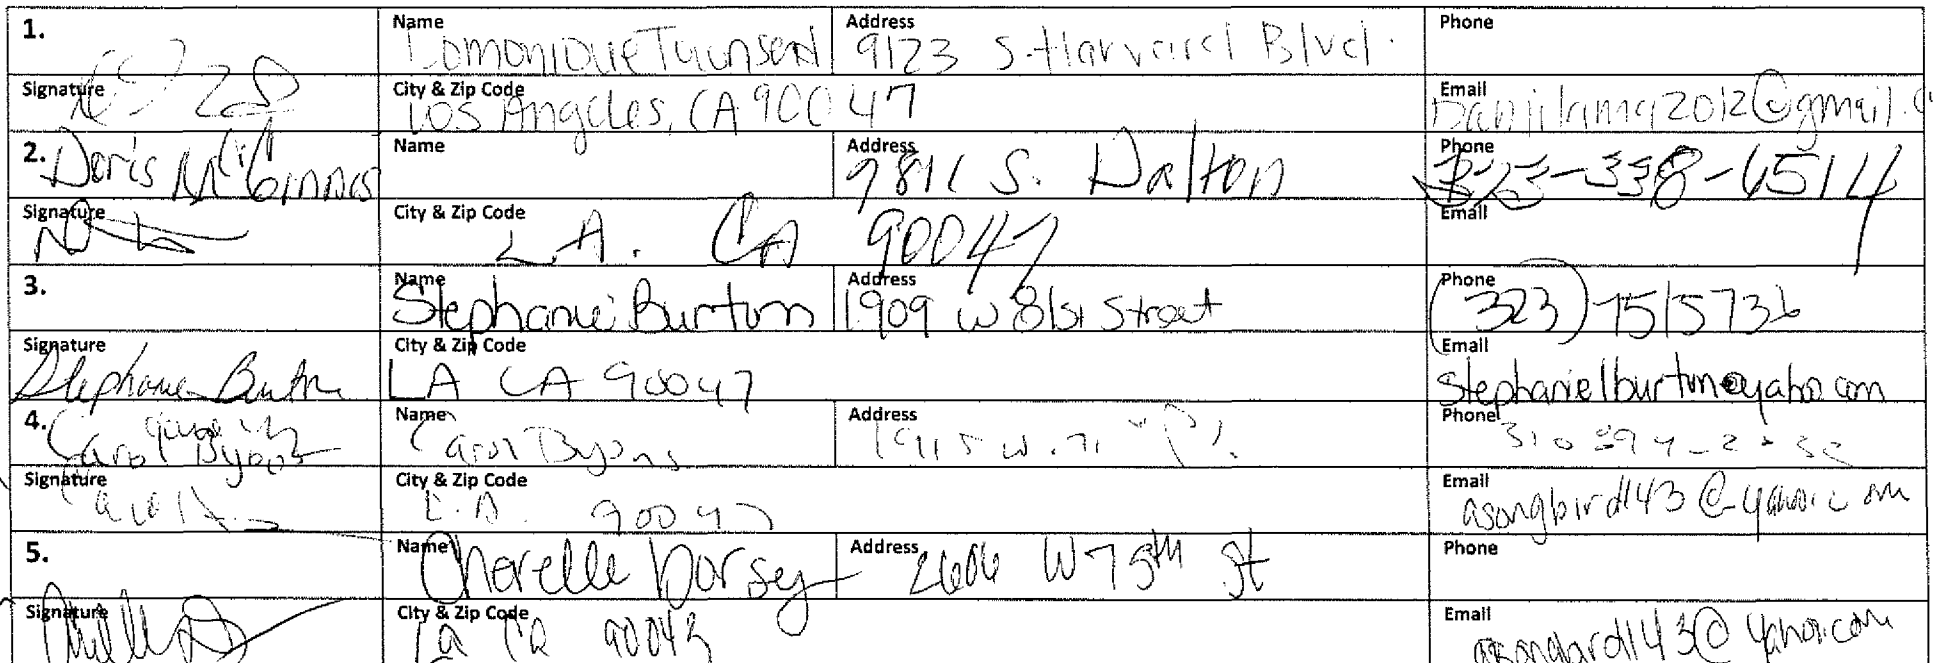 1. Name Domonique Townsend Address 9123 S. Harvard Blvd. Phone
Signature City & Zip Code Los Angeles, CA 90047 Email 2012@gmail.
2. Doris McGinnis Name Address 9811 S. Dalton Phone 323-338-6514
Signature City & Zip Code L.A. CA 90047 Email
3. Name Stephanie Burton Address 1909 W 81st Street Phone (323) 7515736
Signature Stephanie Burton City & Zip Code LA CA 90047 Email stephanielburton@yahoo.com
4. Carol Name Carol Address 1915 W. Phone 310
Signature Carol City & Zip Code L.A. 90047 Email asongbird143@yahoo.com
5. Name Cherelle Dorsey Address 2606 W 75th St Phone
Signature City & Zip Code La Ca 90043 Email asongbird143@yahoo.com